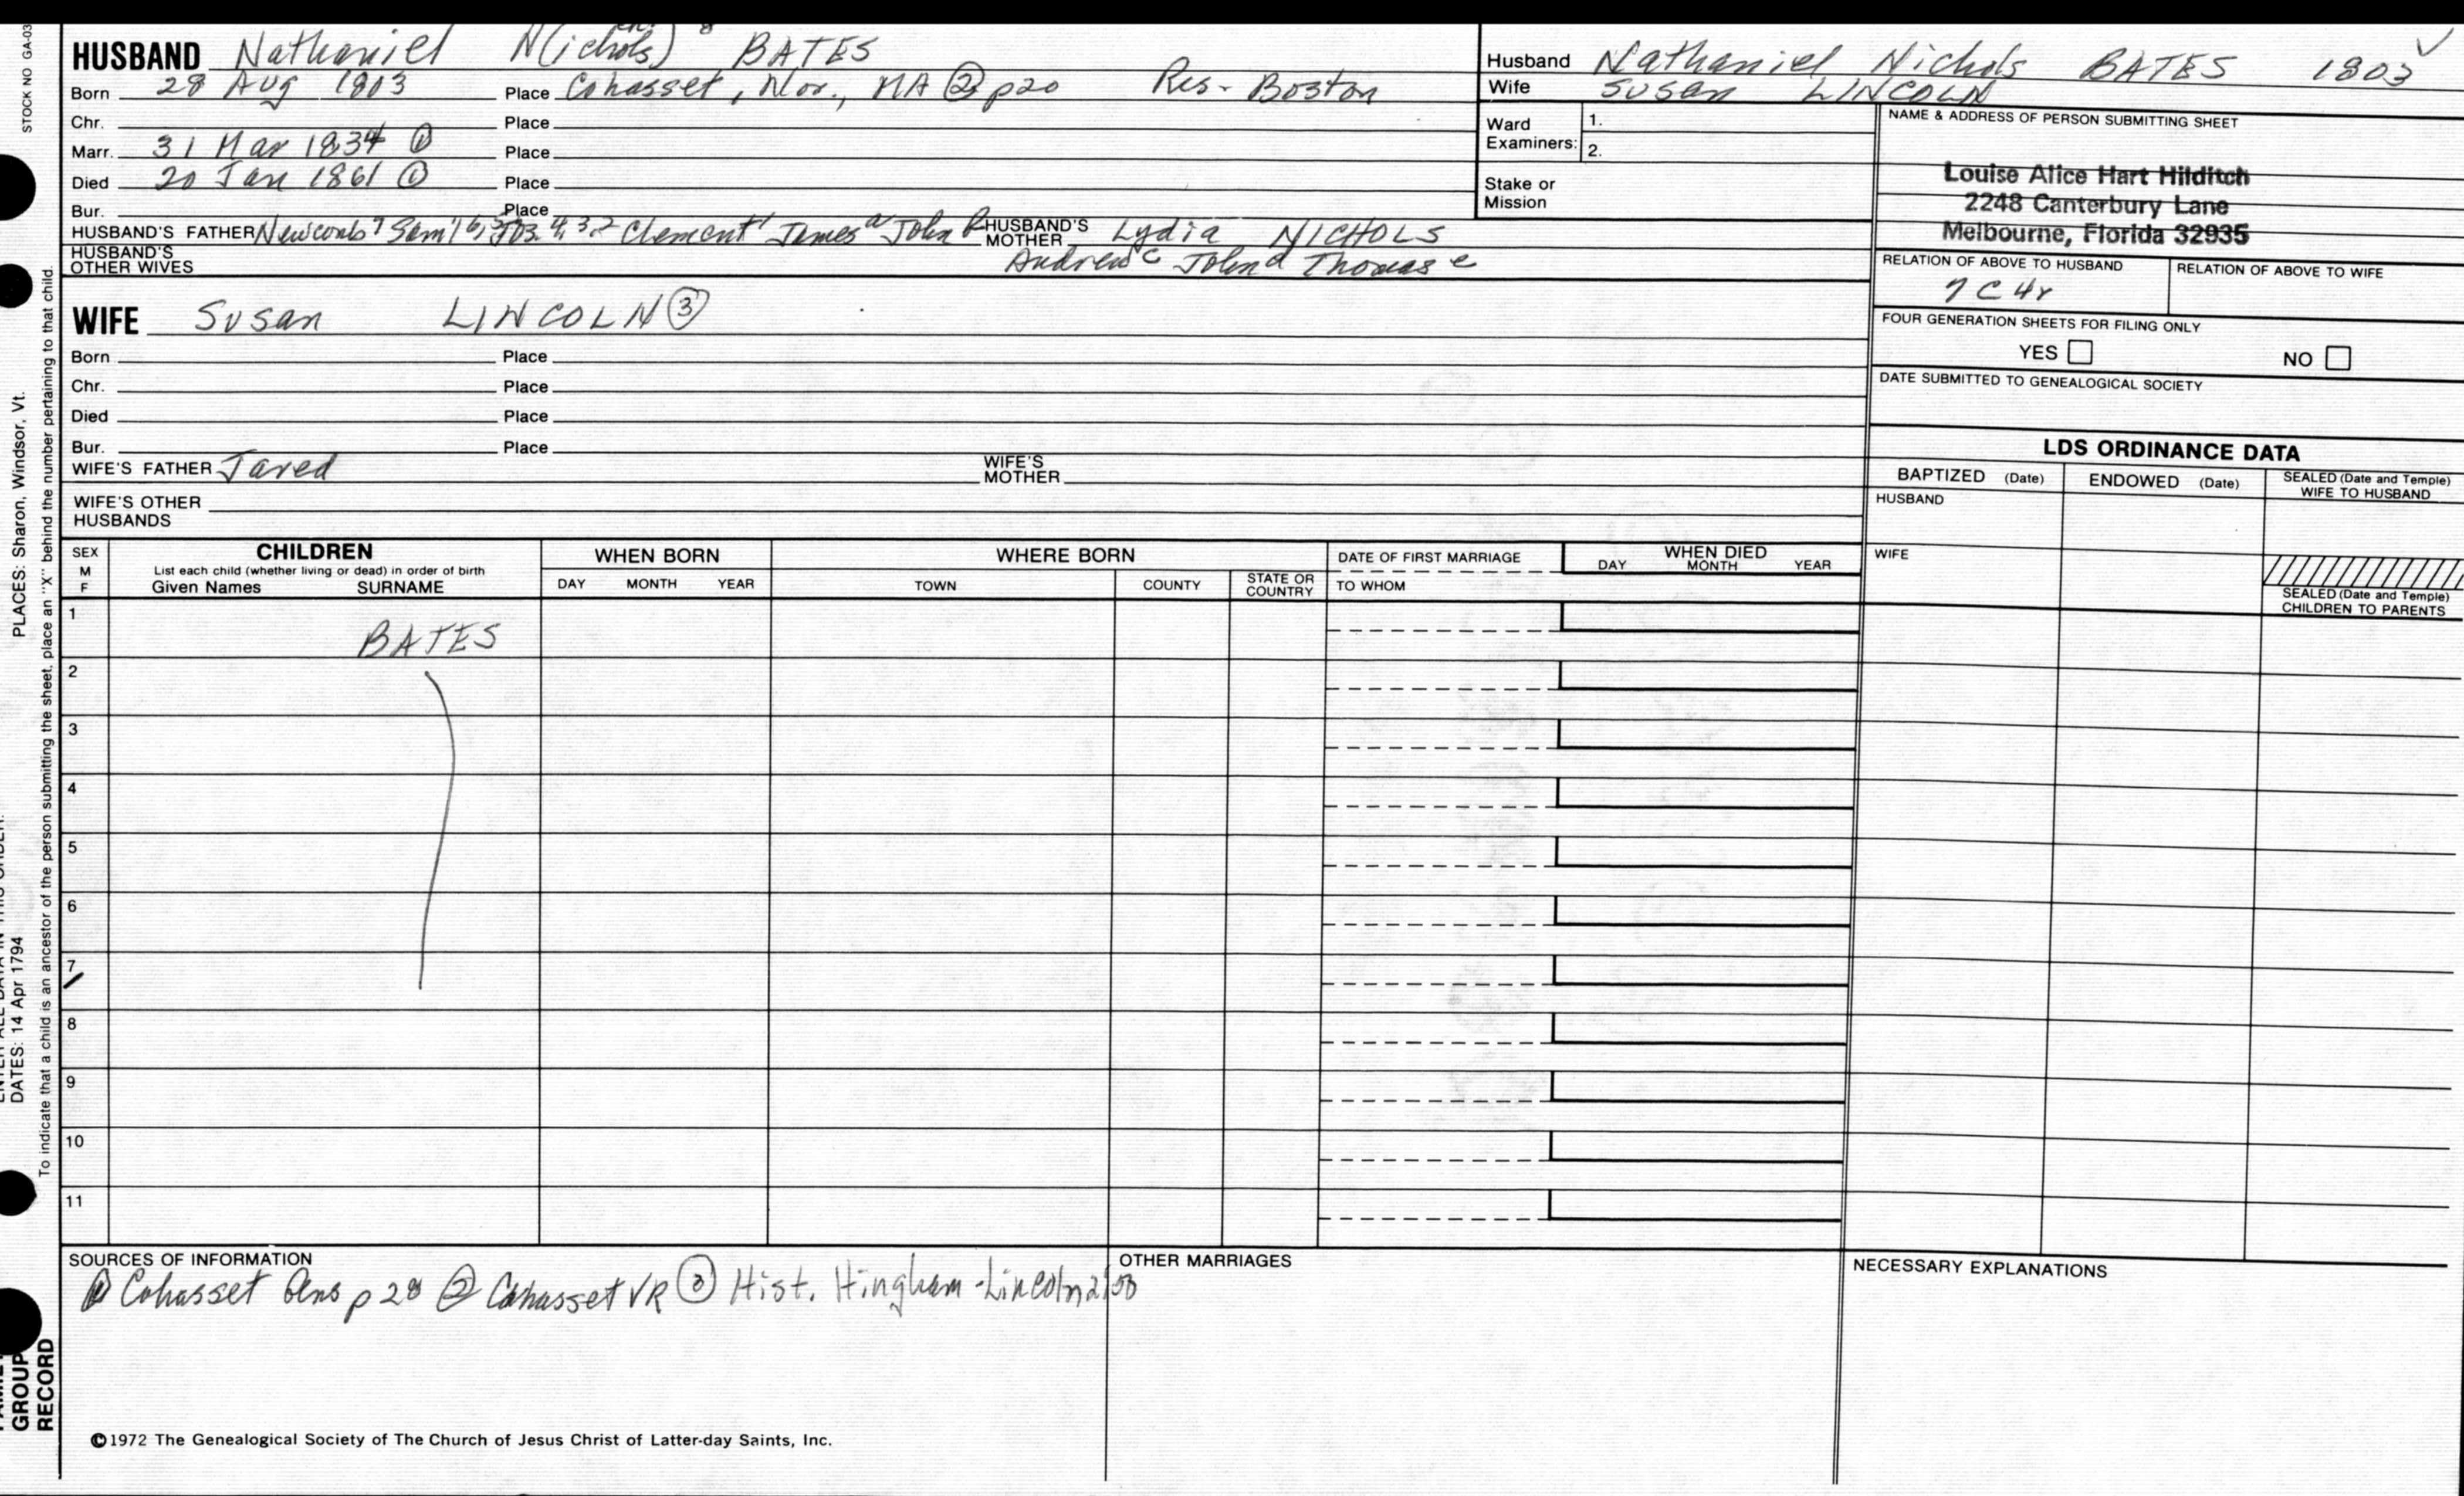 STOCK NO GA-03
HUSBAND Nathaniel N(ichols) 8 BATES
Born 28 Aug 1803 Place Cohasset, Nor., MA ② p20 Res- Boston
Chr. Place
Marr. 31 Mar 1834 ① Place
Died 20 Jan 1861 ① Place
Bur. Place
HUSBAND'S FATHER Newcomb 7 Sam'l 6, 5 Jos. 4, 3, 2 Clement 1 James a John b HUSBAND'S MOTHER Lydia NICHOLS
HUSBAND'S OTHER WIVES Andrew c John d Thomas e
WIFE Susan LINCOLN ③
Born Place
Chr. Place
Died Place
Bur. Place
WIFE'S FATHER Jared WIFE'S MOTHER
WIFE'S OTHER HUSBANDS
Husband Nathaniel Nichols BATES 1803 ✓
Wife Susan LINCOLN
Ward Examiners: 1.
2.
Stake or Mission
NAME & ADDRESS OF PERSON SUBMITTING SHEET
Louise Alice Hart Hilditch
2248 Canterbury Lane
Melbourne, Florida 32935
RELATION OF ABOVE TO HUSBAND RELATION OF ABOVE TO WIFE
7C4r
FOUR GENERATION SHEETS FOR FILING ONLY
YES NO
DATE SUBMITTED TO GENEALOGICAL SOCIETY
LDS ORDINANCE DATA
BAPTIZED (Date) ENDOWED (Date) SEALED (Date and Temple) WIFE TO HUSBAND
HUSBAND
WIFE
SEALED (Date and Temple) CHILDREN TO PARENTS
SEX M F CHILDREN WHEN BORN WHERE BORN DATE OF FIRST MARRIAGE WHEN DIED
List each child (whether living or dead) in order of birth
Given Names SURNAME DAY MONTH YEAR TOWN COUNTY STATE OR COUNTRY TO WHOM DAY MONTH YEAR
1 BATES
2
3
4
5
6
7
8
9
10
11
SOURCES OF INFORMATION
① Cohasset Gens p 28 ② Cohasset VR ③ Hist. Hingham - Lincoln
OTHER MARRIAGES
NECESSARY EXPLANATIONS
©1972 The Genealogical Society of The Church of Jesus Christ of Latter-day Saints, Inc.
PLACES: Sharon, Windsor, Vt.
DATES: 14 Apr 1794
To indicate that a child is an ancestor of the person submitting the sheet, place an "X" behind the number pertaining to that child.
GROUP
RECORD